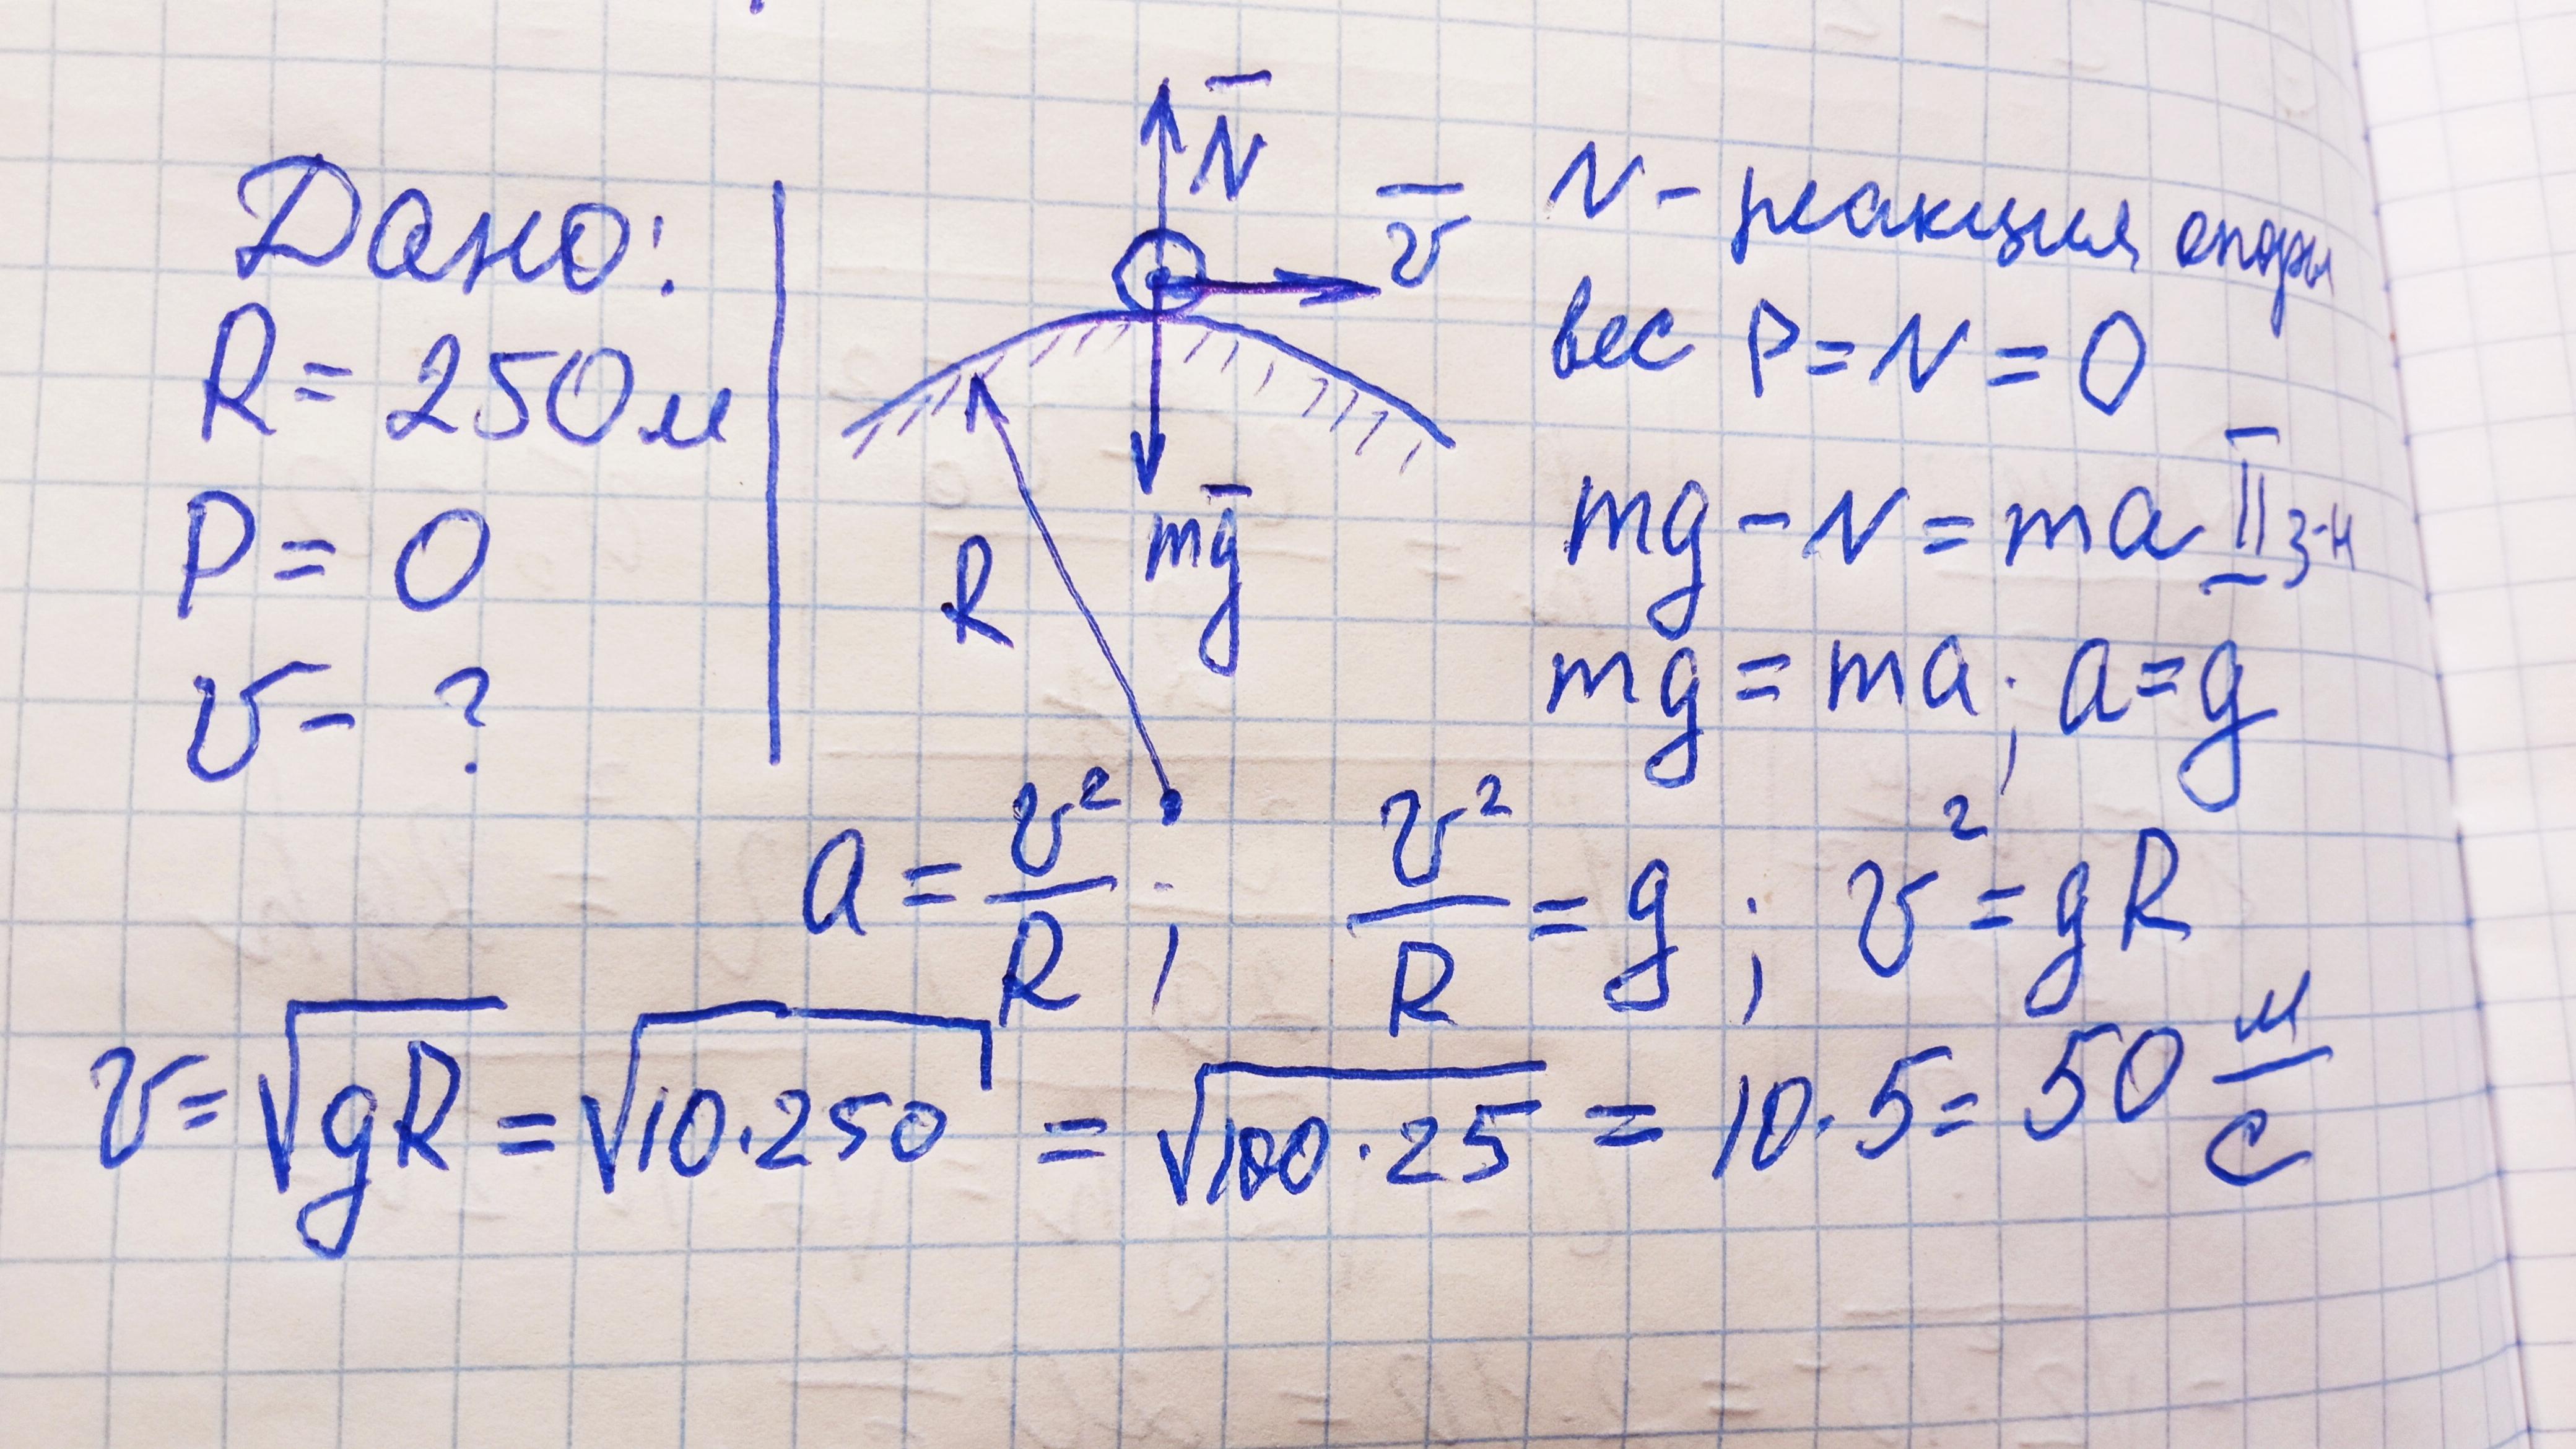 Дано:
R = 250 м
P = 0
v - ?
N̅
v̅
mg̅
R
N - реакция опоры
вес P = N = 0
mg - N = ma II з-н
mg = ma; a = g
a = v²/R; v²/R = g; v² = gR
v = √gR = √10·250 = √100·25 = 10·5 = 50 м/с